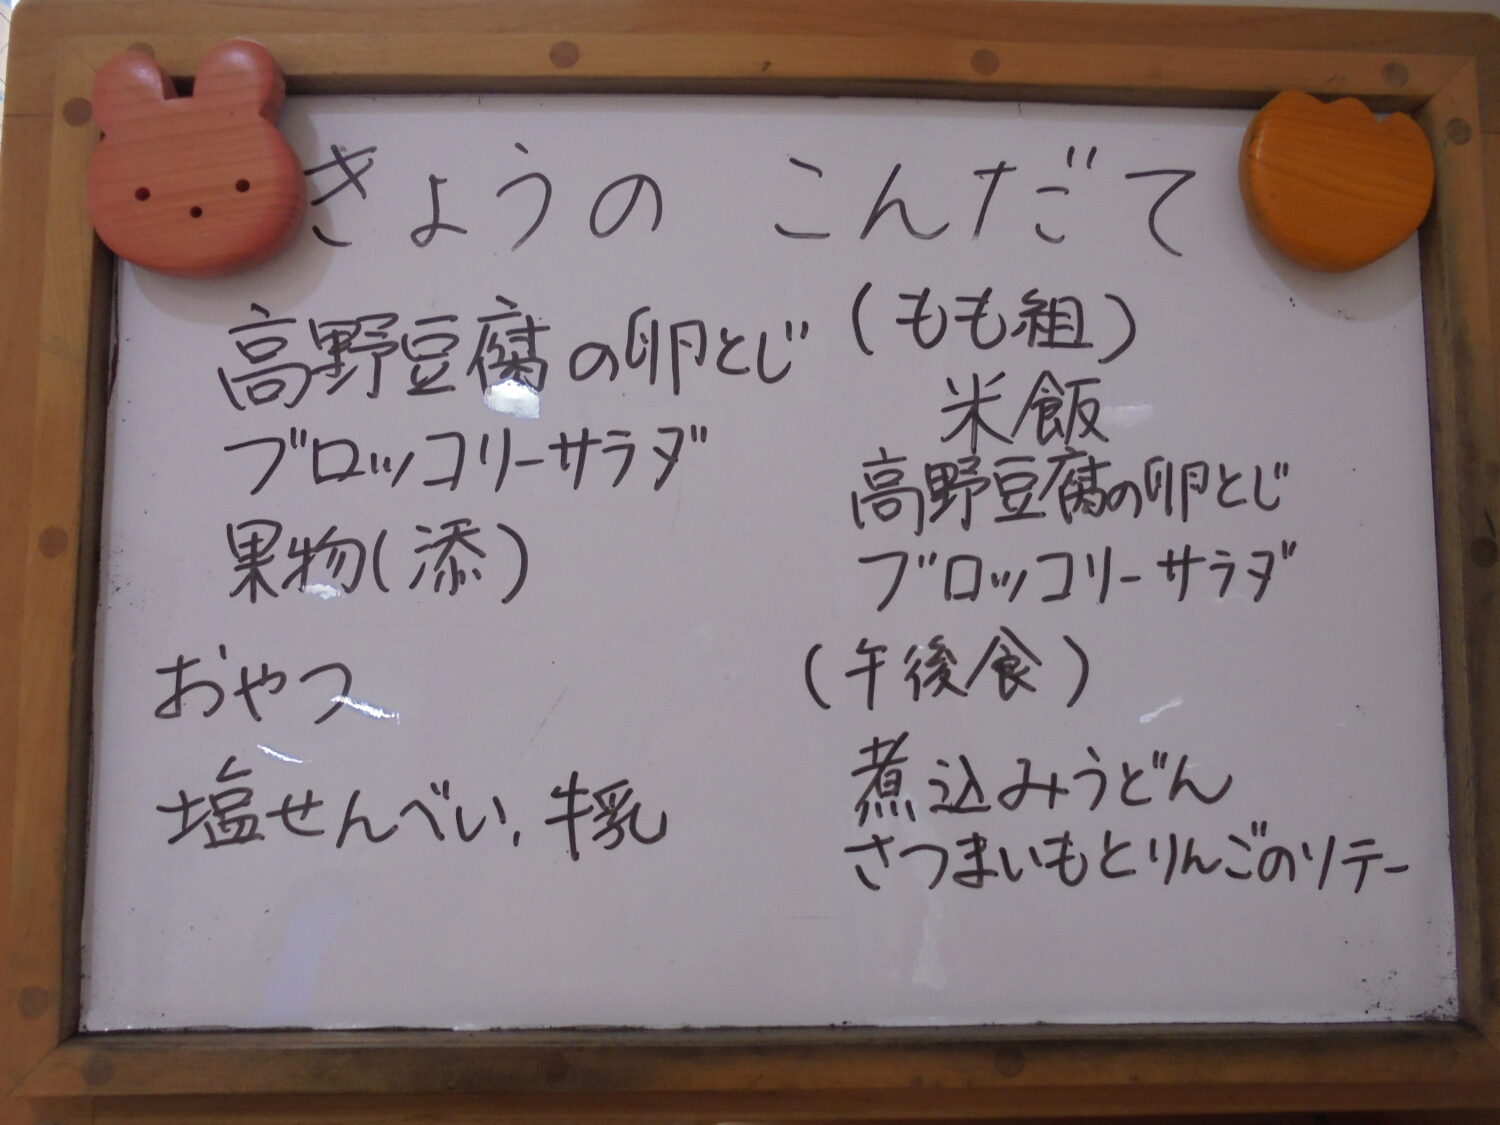 きょうの こんだて
高野豆腐の卵とじ
ブロッコリーサラダ
果物(添)
おやつ
塩せんべい、牛乳
(もも組)
米飯
高野豆腐の卵とじ
ブロッコリーサラダ
(午後食)
煮込みうどん
さつまいもとりんごのソテー